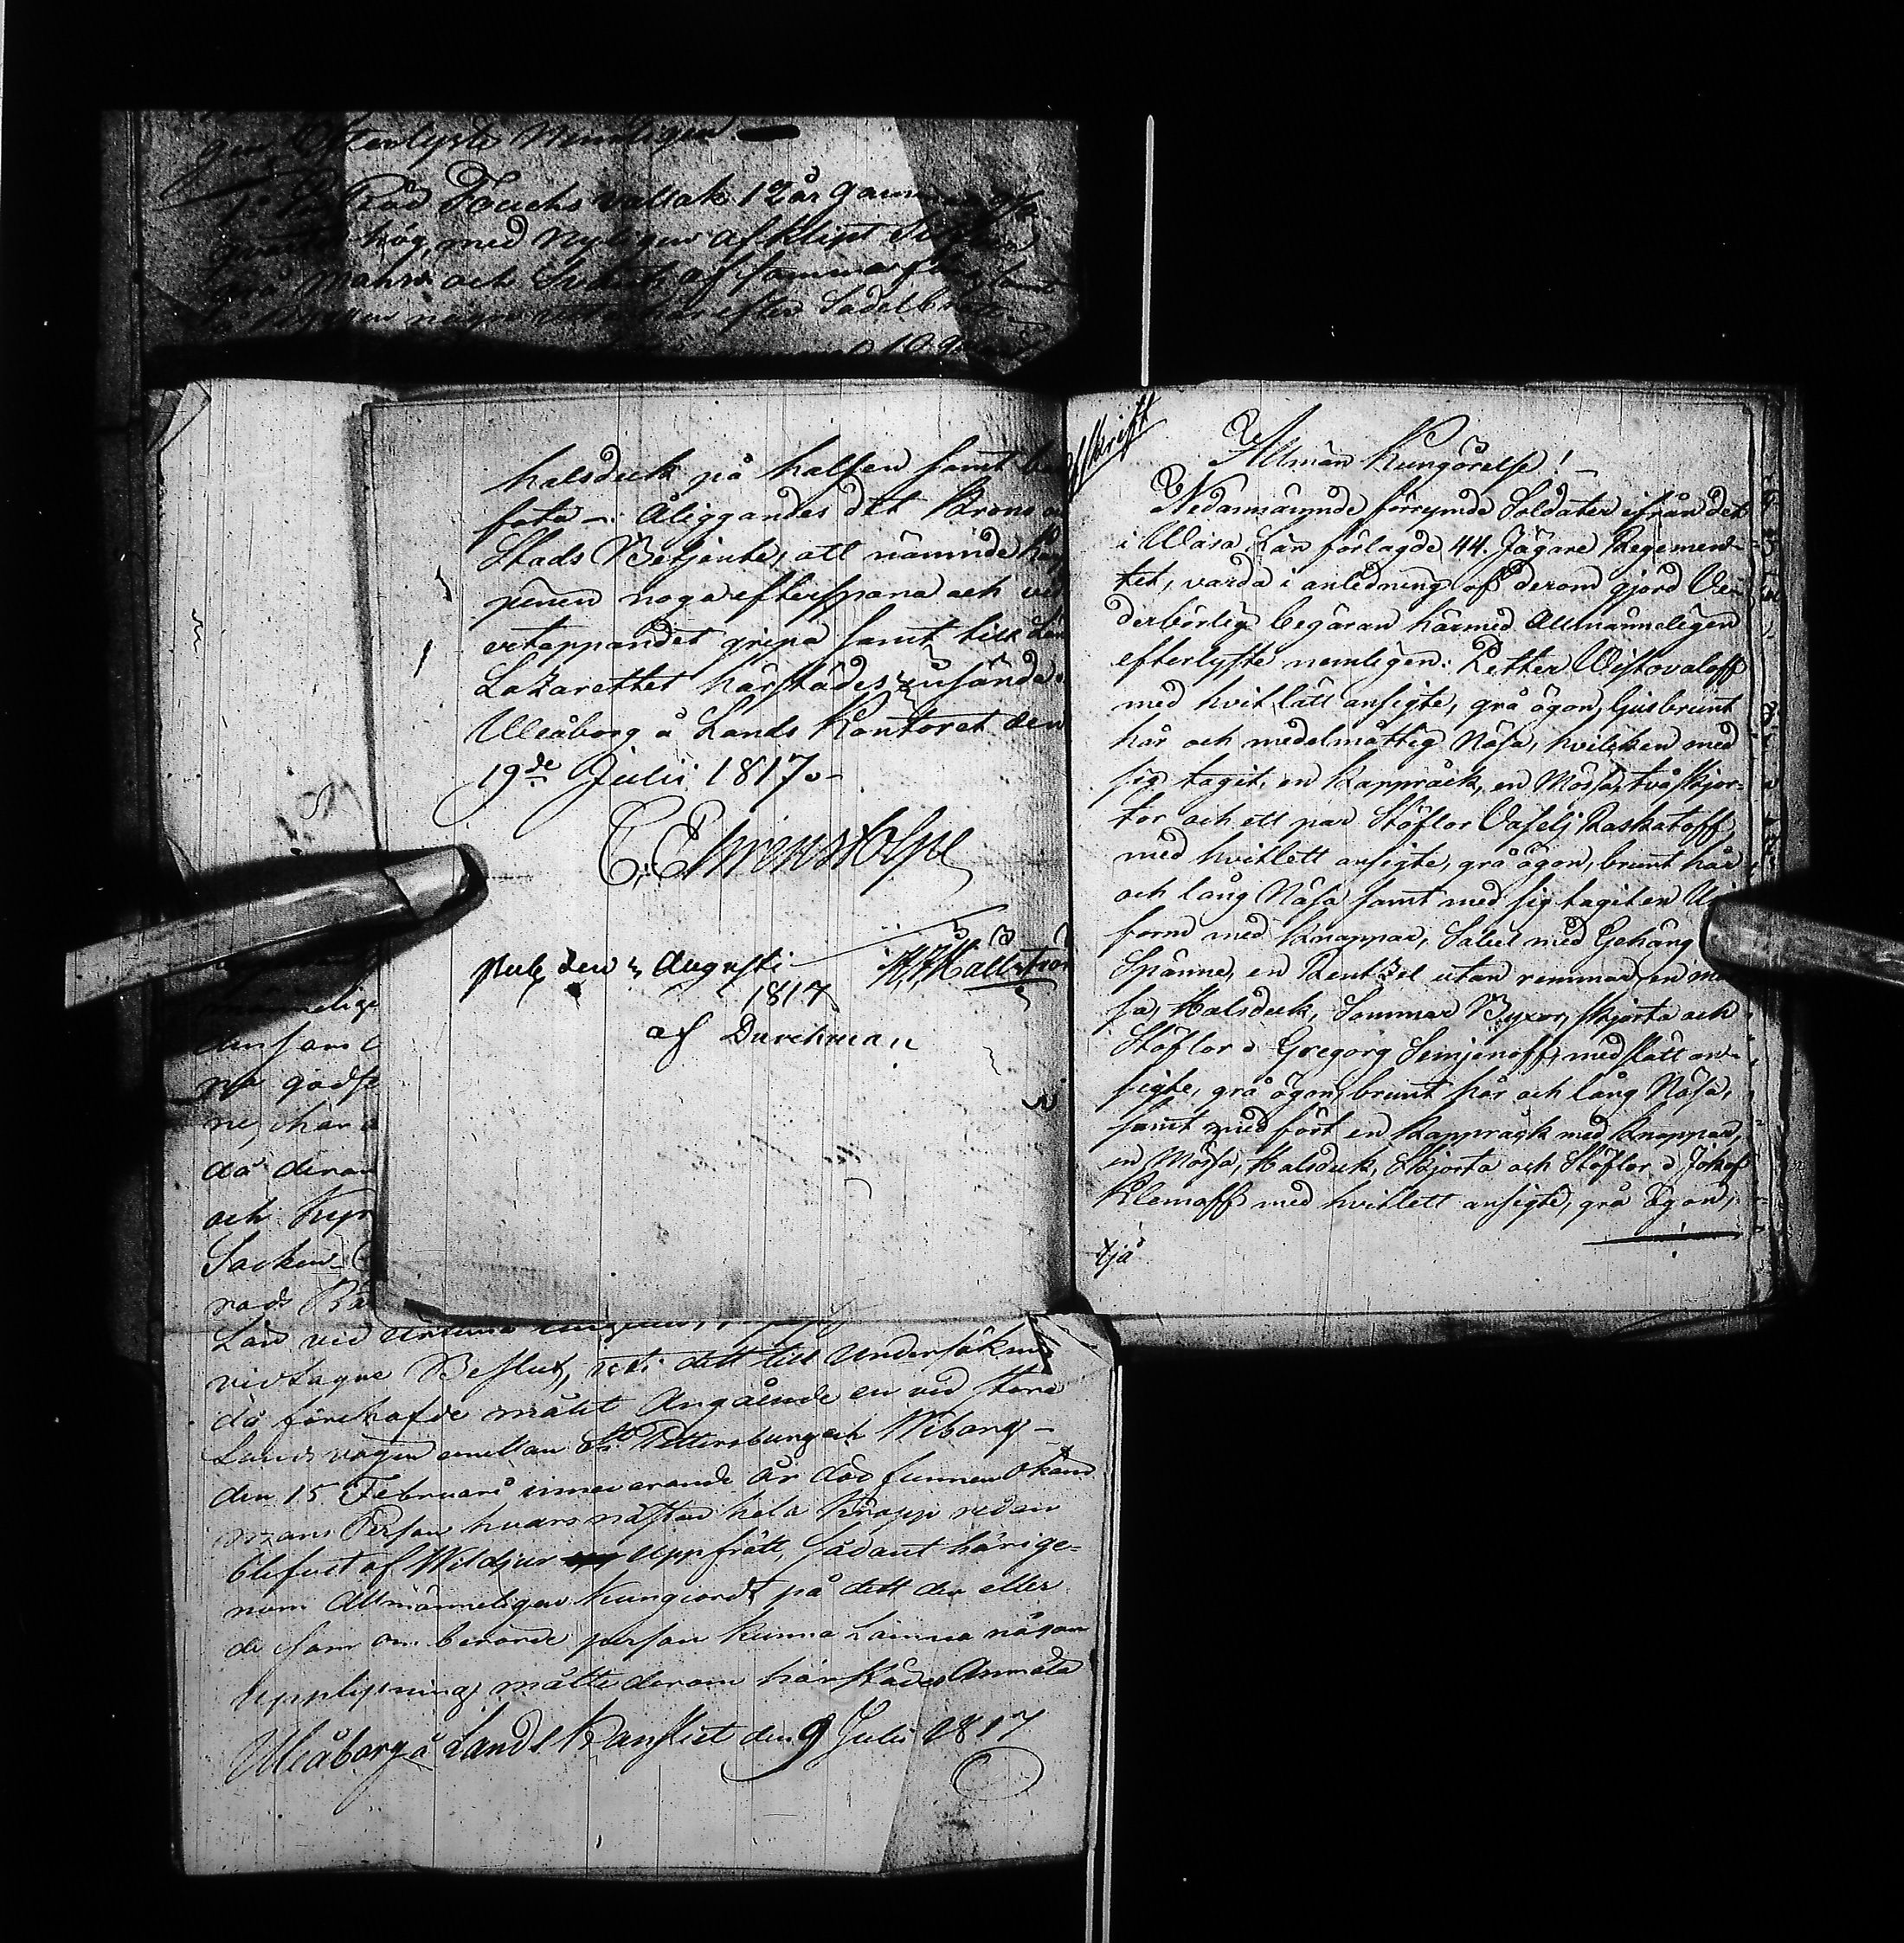 gen, Efterlyste Nemligen
Råd Fouchs vallak 12 år gammal
hög, med nyligen afklipt
grå Mahn och Svants af samma färg samt
på Ryggen några hår efter Sadelbrott
10 quart
halsduk på halsen samt
fota — Åliggandes det Krono
Stads Betjente, att nämnde
penen noga efterspana och vid
ertappandet gripa samt till Län
Lazarettet härstädes insända
Uleåborg å Lands Kontoret den
19de Julii 1817.
C. Ehrenstolpe
H. F. Hällström
Publ. den 3 Augusti
1817
af Durchman
Afskrift
Allmän Kungörelse!
Nedannämnde förrymde Soldater ifrån det
i Wasa Län förlagde 44. Jägare Regemen-
tet, varda i anledning af derom gjord Ve-
derbörlig begäran härmed Allmänneligen
efterlyste nemligen: Petter Wistovaloff
med hvitlätt ansigte, grå ögon, ljusbrunt
hår och medelmåttig Näsa, hvilcken med
sig tagit en Kappråck, en Mössa, två skjor-
tor och ett par Stöflor Vasilj Raskatoff,
med hvitlett ansigte, grå ögon, brunt hår
och lång Näsa samt med sig tagit en Uni
form med Knappar, Sabel med Gehäng
Spänne, en Rentzel utan remmar, en mös
sa, Halsduk, Sommar Byxor, skjorta och
Stöflor. Gregorg Semjenoff, med slätt an-
sigte, grå ögon, brunt hår och lång Näsa,
samt med fört en Kappråck med Knappar,
en Mössa, Halsduk, Skjorta och Stöflor. Jokof
Klemoff med hvitlett ansigte, grå Ögon,
sam
na godse
ne, har
då deran
och kyr
Sacken
nads
Län vid
vidtagne Beslut, uti dett till Undersökning
då förehafde målet Angående en vid stora
Landsvägen emellan St. Pettersburg och Wiborg —
den 15 Februarii innevarande år död funnen Okänd
Mans Person hvars nästan hela Kropp redan
blifvit af Wildjur uppfrätt, sådant härige-
nom Allmänneligen kungiordt på dett den eller
de som om berörde person kunna Lämna någon
upplysning måtte derom härstädes Anmäla
Uleåborg å Lands Kansliet den 9 Julii 1817